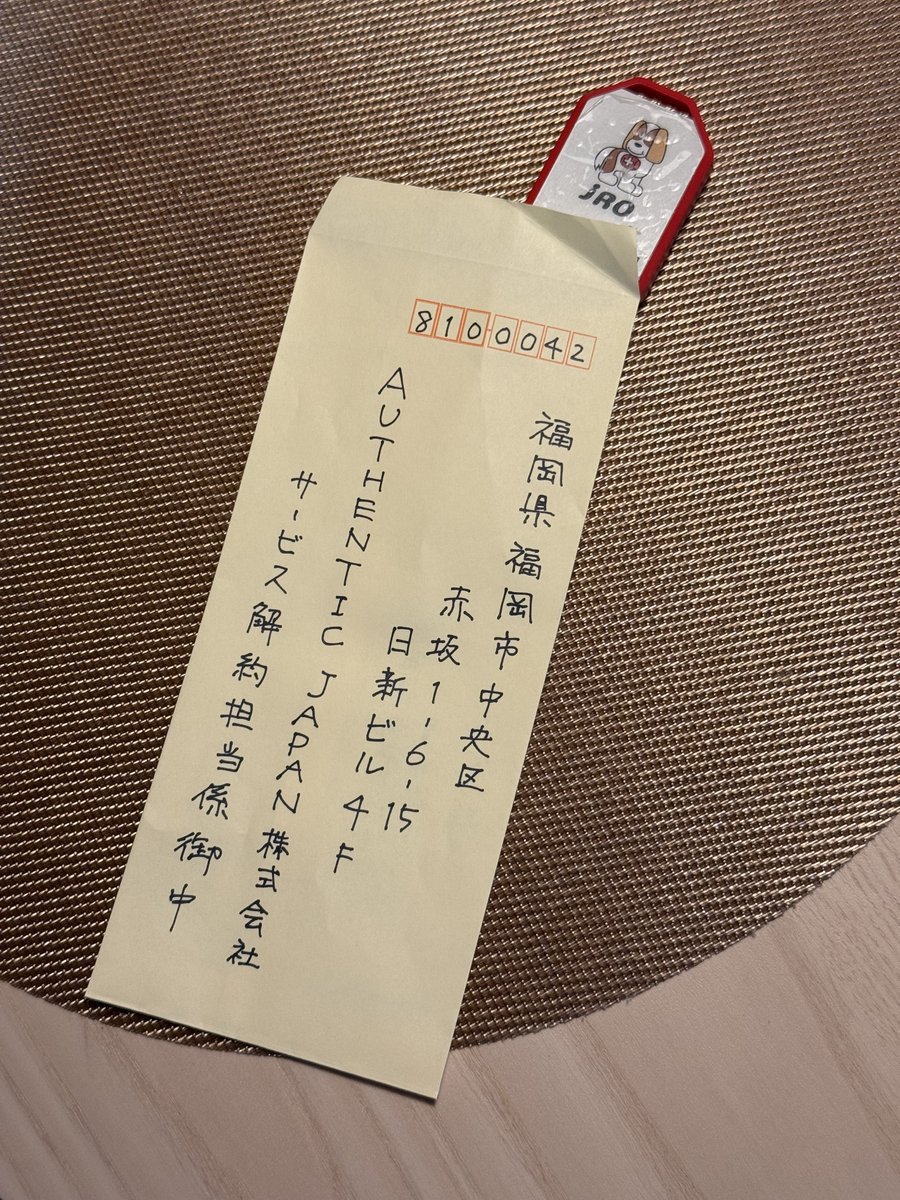 jRO
8100042
福岡県福岡市中央区
赤坂1-6-15
日新ビル4F
AUTHENTIC JAPAN株式会社
サービス解約担当係御中